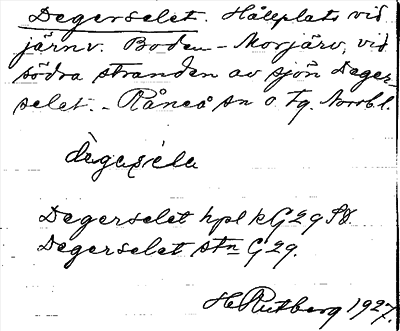 Degerselet. Hållplats vid
järnv. Boden - Morjärv, vid
södra stranden av sjön Deger-
selet. - Råneå sn o. tg. Norrb. l.
dègeṣéla
Degerselet hpl kG29SO.
Degerselet stn G29.
H Rutberg 1927.